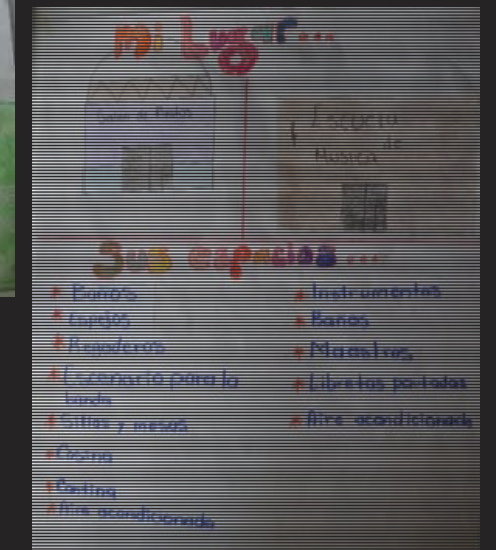 mi Lugar...
Salon de fiestas
Escuela
de
Musica
Sus espacios...
* Baños
* Espejos
* Regaderas
* Escenario para la
banda
* Sillas y mesas
* Cosina
* Cantina
* Aire acondicionado
* Instrumentos
* Baños
* Maestros
* Libretas pautadas
* Aire acondicionado